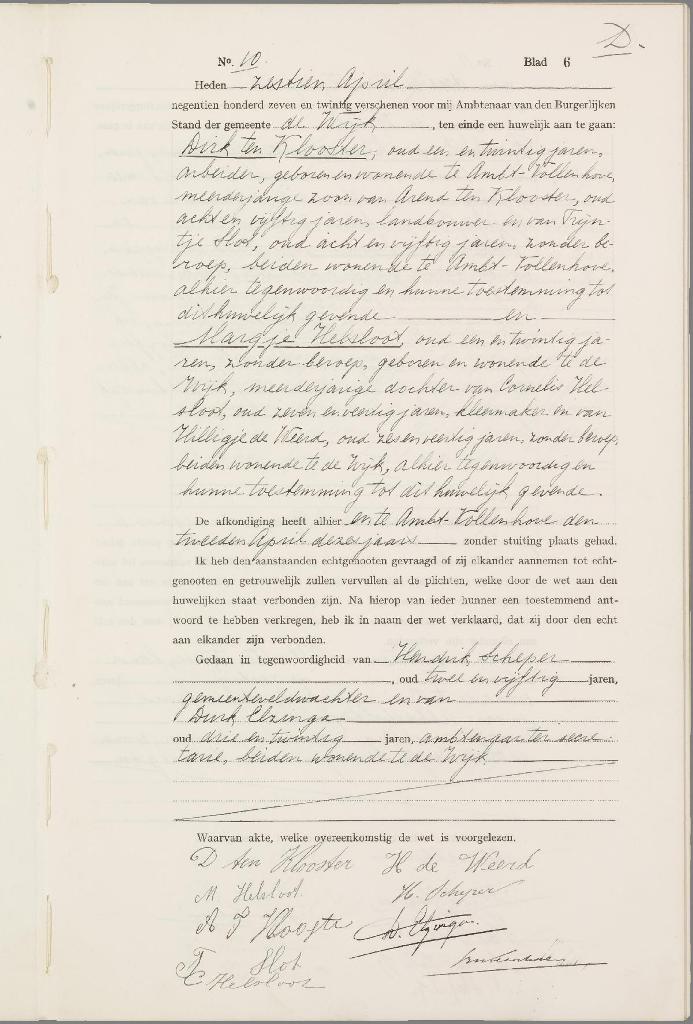 D.
No. 10. Blad 6
Heden zestien April
negentien honderd zeven en twintig verschenen voor mij Ambtenaar van den Burgerlijken
Stand der gemeente de Wijk, ten einde een huwelijk aan te gaan:
Dirk ten Klooster, oud een en twintig jaren,
arbeider, geboren en wonende te Ambt-Vollenhove,
meerderjarige zoon van Arend ten Klooster, oud
acht en vijftig jaren, landbouwer en van Trijn-
tje Slot, oud acht en vijftig jaren, zonder be-
roep, beiden wonende te Ambt-Vollenhove,
alhier tegenwoordig en hunne toestemming tot
dit huwelijk gevende en
Margje Helsloot, oud een en twintig ja-
ren, zonder beroep, geboren en wonende te de
Wijk, meerderjarige dochter van Cornelis Hel-
sloot, oud zeven en veertig jaren, kleermaker en van
Hilligje de Weerd, oud zes en veertig jaren, zonder beroep,
beiden wonende te de Wijk, alhier tegenwoordig en
hunne toestemming tot dit huwelijk gevende.
De afkondiging heeft alhier en te Ambt-Vollenhove den
tweeden April dezes jaars zonder stuiting plaats gehad.
Ik heb den aanstaanden echtgenooten gevraagd of zij elkander aannemen tot echt-
genooten en getrouwelijk zullen vervullen al de plichten, welke door de wet aan den
huwelijken staat verbonden zijn. Na hierop van ieder hunner een toestemmend ant-
woord te hebben verkregen, heb ik in naam der wet verklaard, dat zij door den echt
aan elkander zijn verbonden.
Gedaan in tegenwoordigheid van Hendrik Scheper
, oud twee en vijftig jaren,
gemeenteveldwachter en van
Durk Elzinga
oud drie en twintig jaren, ambtenaar ter secre-
tarie, beiden wonende te de Wijk
Waarvan akte, welke overeenkomstig de wet is voorgelezen.
D ten Klooster H de Weerd
M Helsloot H. Scheper
A T Kloogte D. Elzinga.
T Slot
C Helsloot